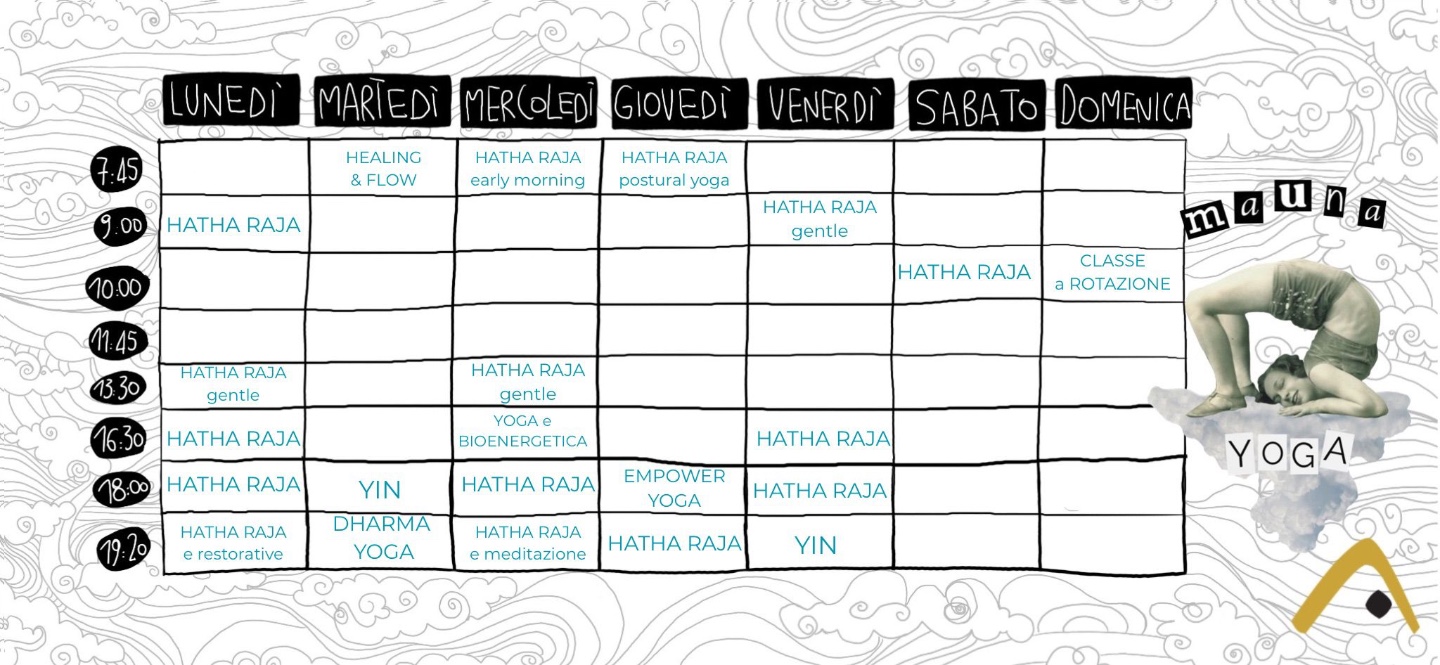 LUNEDÌ MARTEDÌ MERCOLEDÌ GIOVEDÌ VENERDÌ SABATO DOMENICA
7:45
HEALING
& FLOW
HATHA RAJA
early morning
HATHA RAJA
postural yoga
9:00
HATHA RAJA
HATHA RAJA
gentle
10:00
HATHA RAJA
CLASSE
a ROTAZIONE
11:45
13:30
HATHA RAJA
gentle
HATHA RAJA
gentle
16:30
HATHA RAJA
YOGA e
BIOENERGETICA
HATHA RAJA
18:00
HATHA RAJA
YIN
HATHA RAJA
EMPOWER
YOGA
HATHA RAJA
19:20
HATHA RAJA
e restorative
DHARMA
YOGA
HATHA RAJA
e meditazione
HATHA RAJA
YIN
mauna
YOGA